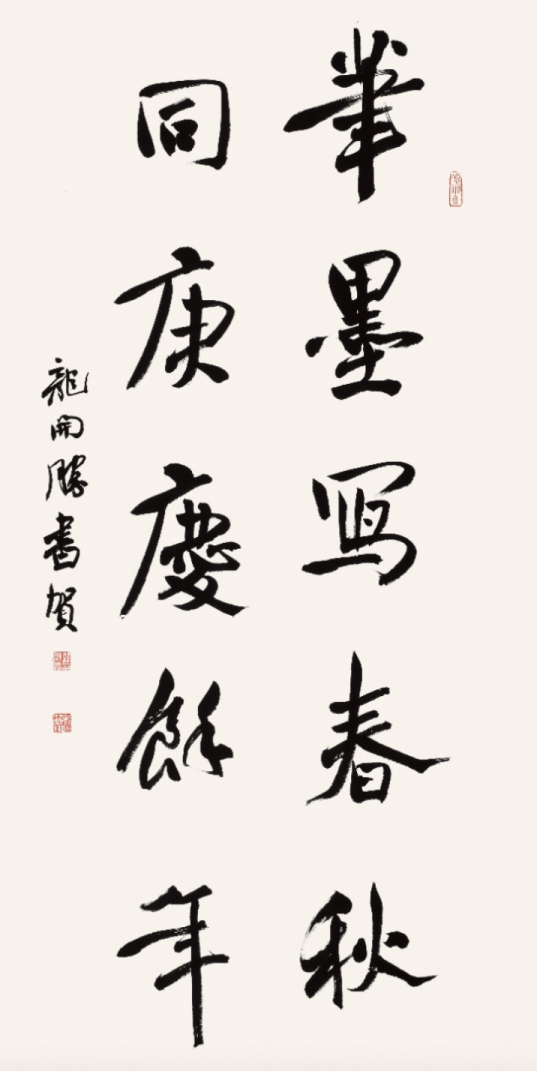 筆墨寫春秋
同庚慶餘年
龍開勝書賀